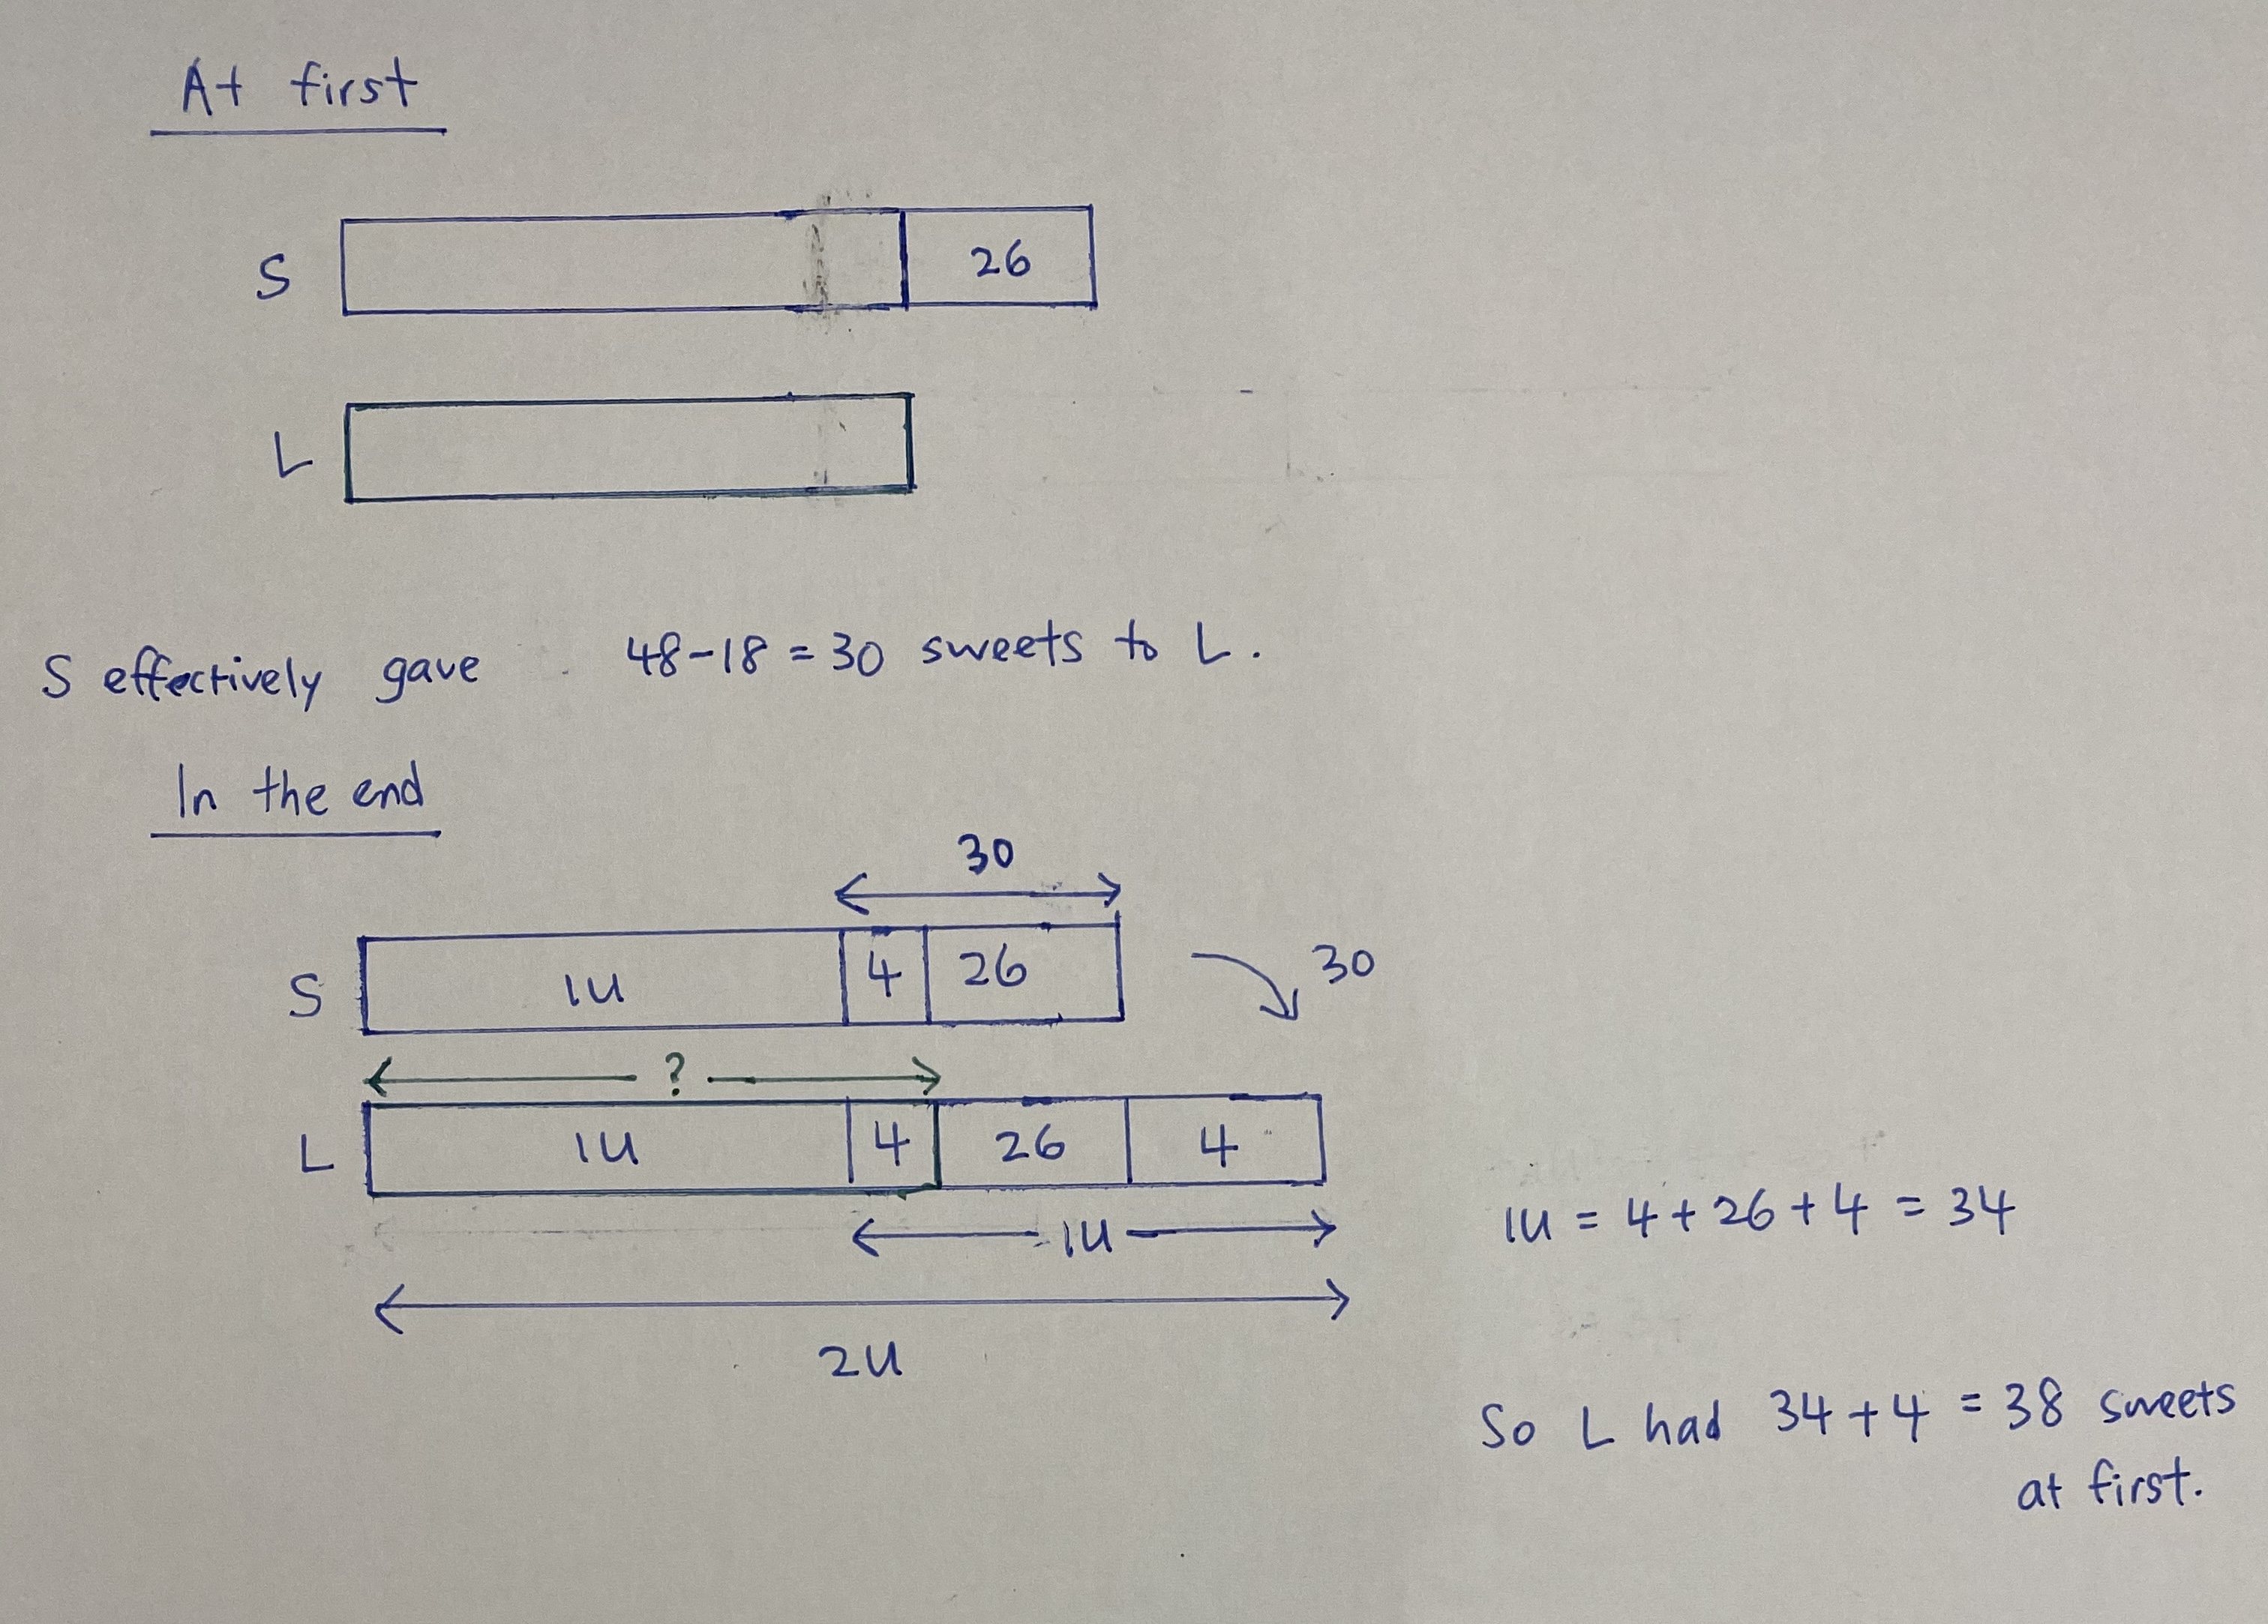 At first
S 26
L
S effectively gave 48-18 = 30 sweets to L.
In the end
30
S 1u 4 26 30
?
L 1u 4 26 4
1u = 4 + 26 + 4 = 34
1u
2u
So L had 34 + 4 = 38 sweets
at first.